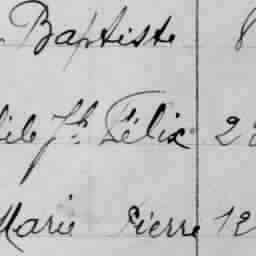 Baptiste 8
Jh. Félix 2
Marie Pierre 12